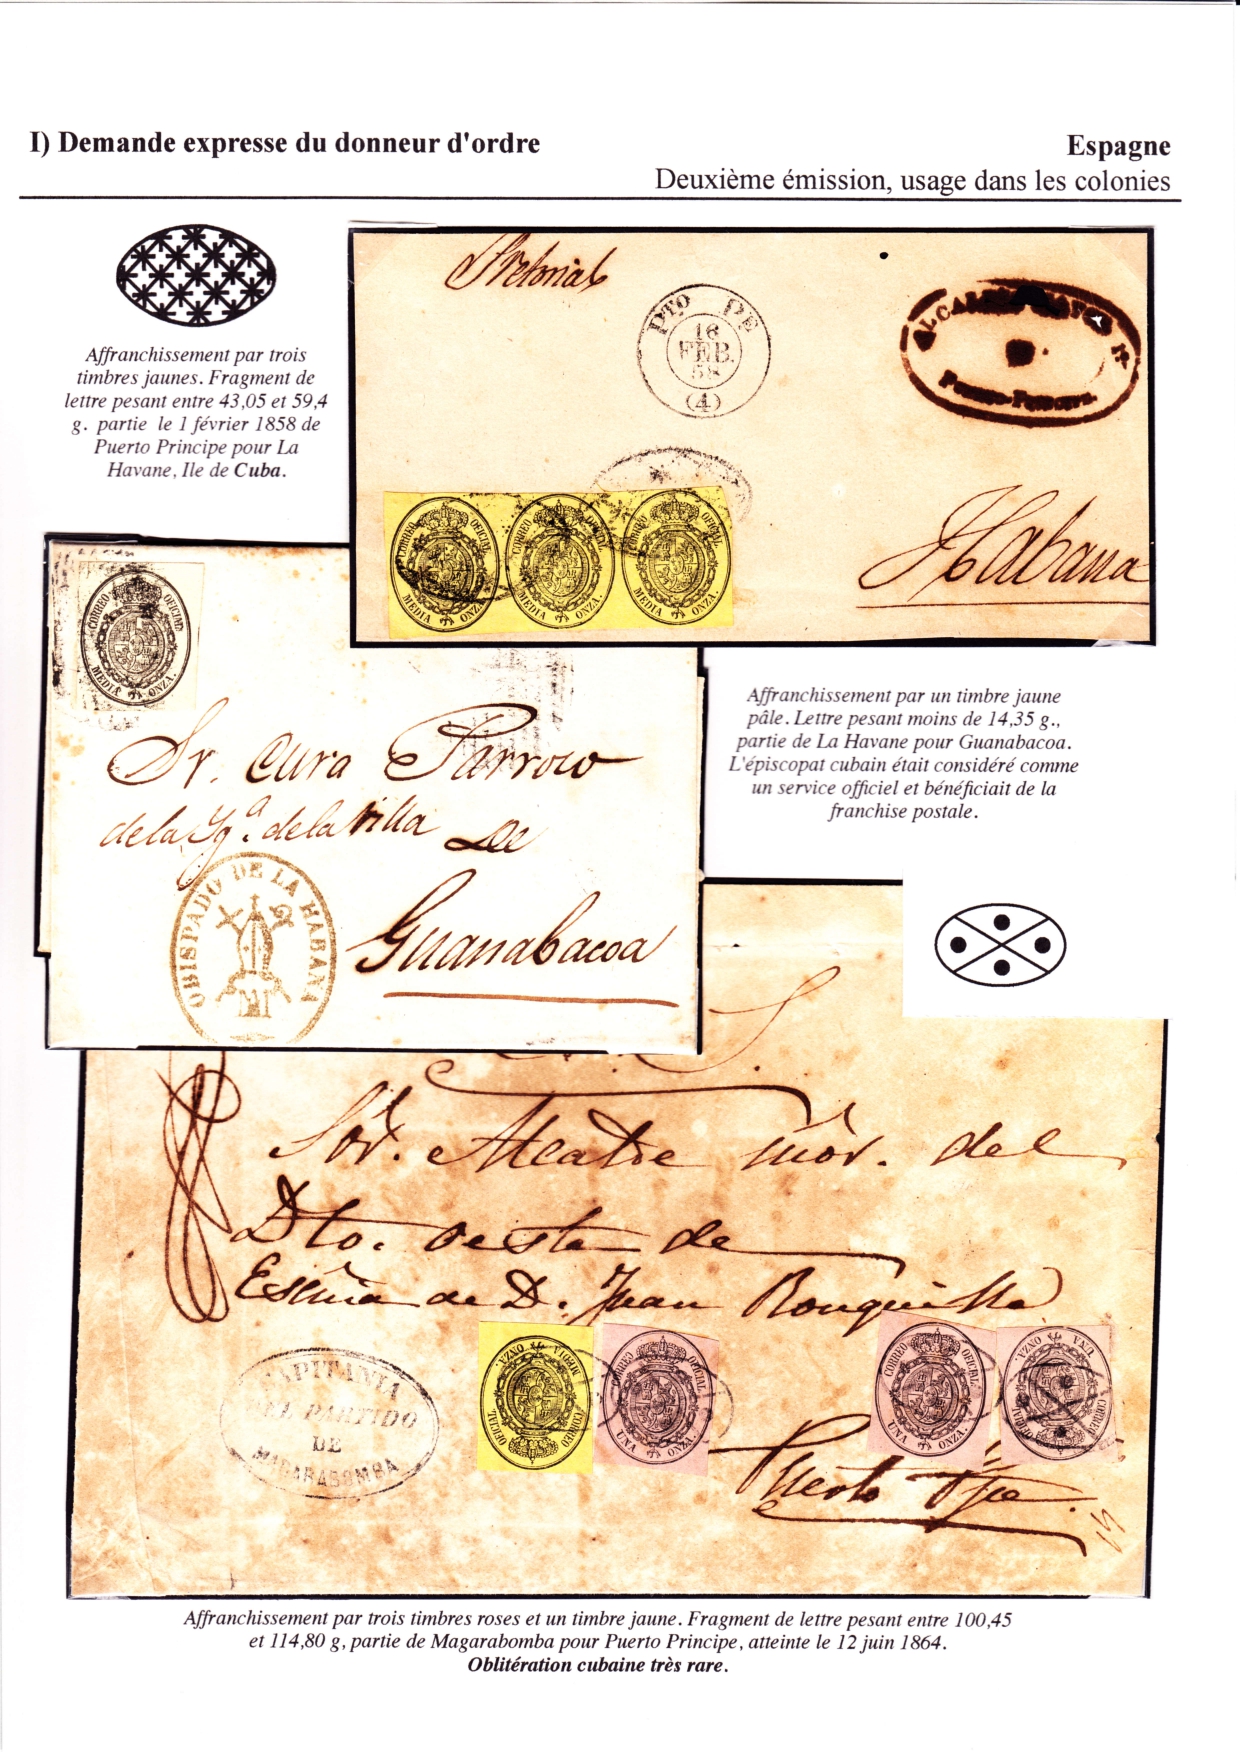 I) Demande expresse du donneur d'ordre
Espagne
Deuxième émission, usage dans les colonies
Affranchissement par trois
timbres jaunes. Fragment de
lettre pesant entre 43,05 et 59,4
g. partie le 1 février 1858 de
Puerto Principe pour La
Havane, Ile de Cuba.
PTO PE
16
FEB.
58
(4)
Habana
CORREO OFICIAL
MEDIA ONZA.
CORREO OFICIAL
MEDIA ONZA.
CORREO OFICIAL
MEDIA ONZA.
CORREO OFICIAL
MEDIA ONZA.
Sr. Cura Parroco
de la Yga. de la Villa De
Guanabacoa
OBISPADO DE LA HABANA
Affranchissement par un timbre jaune
pâle. Lettre pesant moins de 14,35 g.,
partie de La Havane pour Guanabacoa.
L'épiscopat cubain était considéré comme
un service officiel et bénéficiait de la
franchise postale.
S.
Sor. Alcalde mòr. del
Dto. oeste de
de D. Juan Ronquillo
CAPITANIA
DEL PARTIDO
DE
MAGARABOMBA
CORREO OFICIAL
MEDIA ONZA.
CORREO OFICIAL
UNA ONZA.
CORREO OFICIAL
UNA ONZA.
CORREO OFICIAL
UNA ONZA.
Puerto Ppe.
Affranchissement par trois timbres roses et un timbre jaune. Fragment de lettre pesant entre 100,45
et 114,80 g, partie de Magarabomba pour Puerto Principe, atteinte le 12 juin 1864.
Oblitération cubaine très rare.